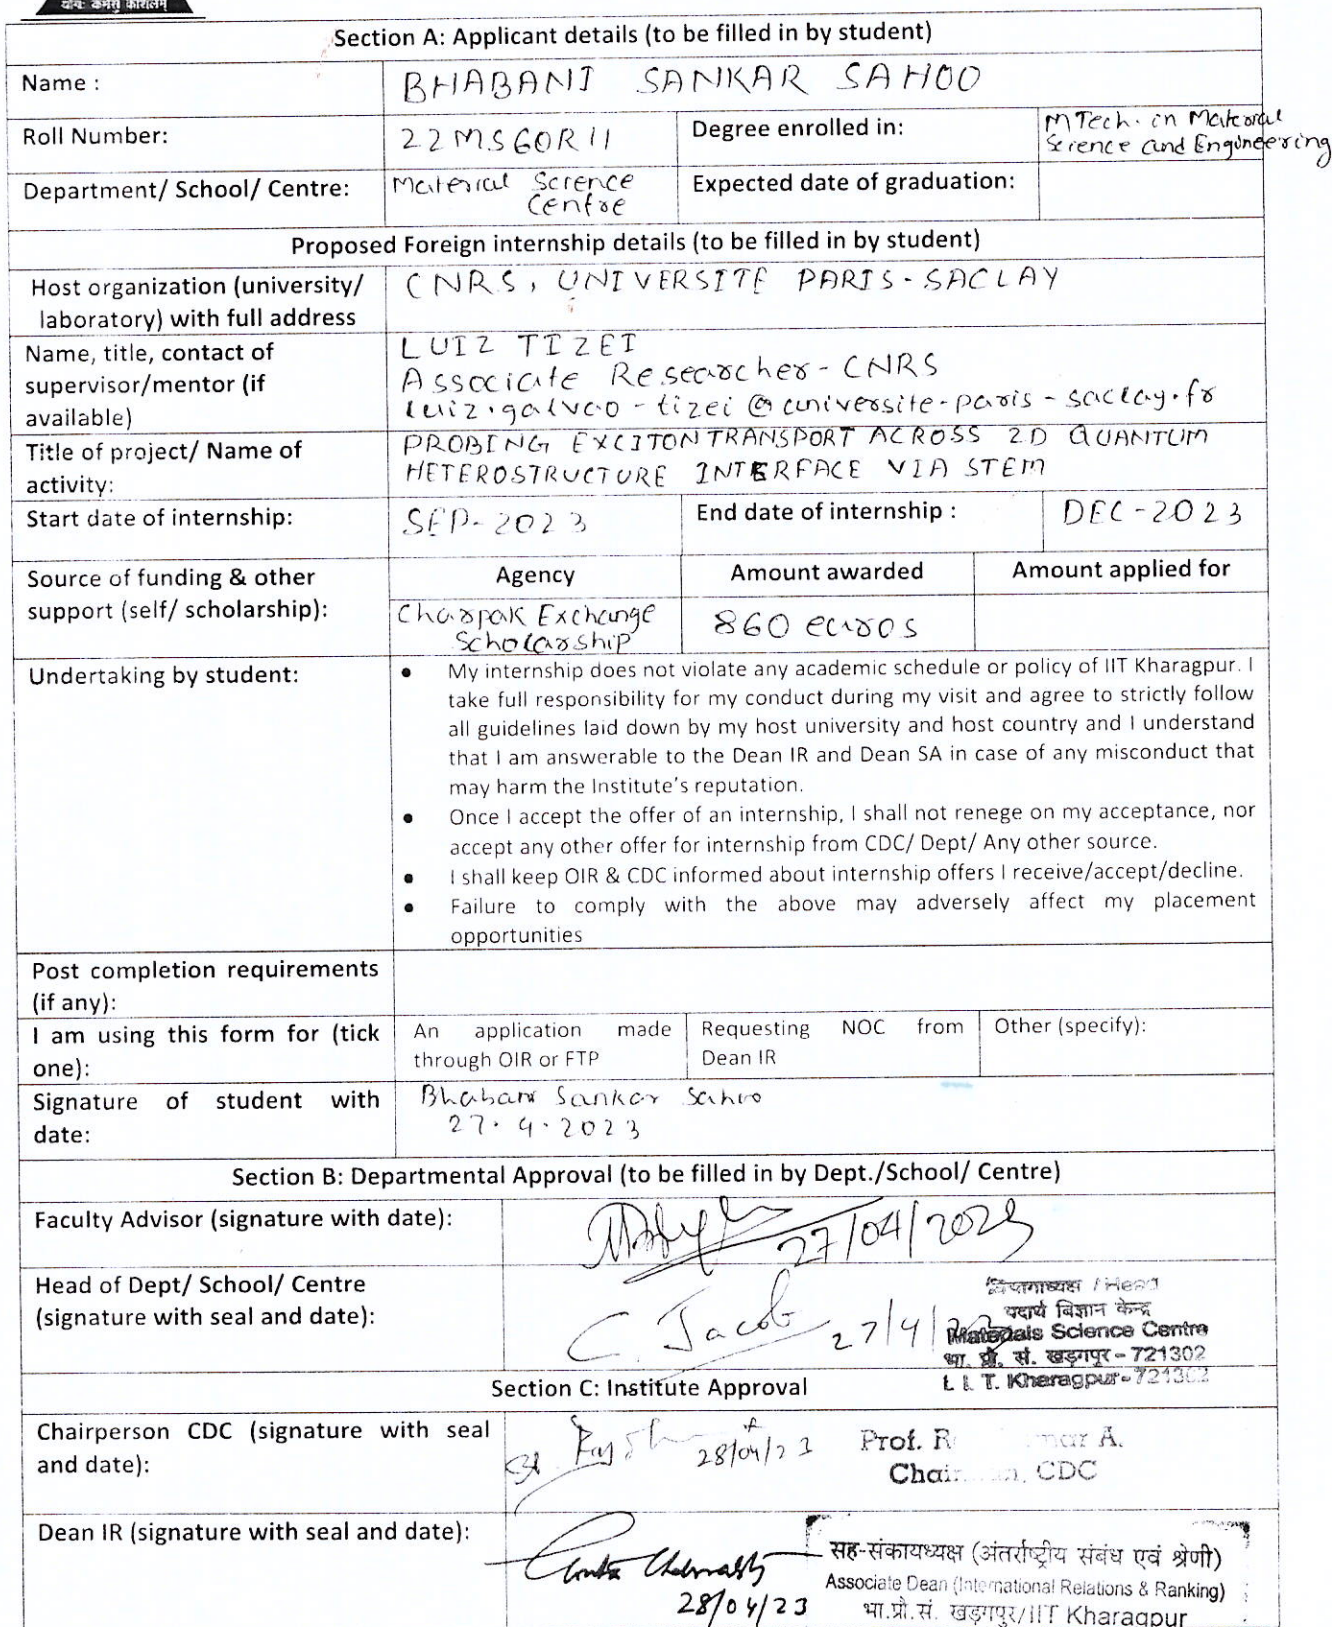 योगः कर्मसु कौशलम्
Section A: Applicant details (to be filled in by student)
Name :
BHABANI SANKAR SAHOO
Roll Number:
22MS60R11
Degree enrolled in:
MTech. in Material
Science and Engineering
Department/ School/ Centre:
Material Science
Centre
Expected date of graduation:
Proposed Foreign internship details (to be filled in by student)
Host organization (university/
laboratory) with full address
CNRS, UNIVERSITE PARIS-SACLAY
Name, title, contact of
supervisor/mentor (if
available)
LUIZ TIZEI
Associate Researcher - CNRS
luiz.galvao-tizei@universite-paris-saclay.fr
Title of project/ Name of
activity:
PROBING EXCITON TRANSPORT ACROSS 2D QUANTUM
HETEROSTRUCTURE INTERFACE VIA STEM
Start date of internship:
SEP-2023
End date of internship :
DEC-2023
Source of funding & other
support (self/ scholarship):
Agency
Amount awarded
Amount applied for
Charpak Exchange
Scholarship
860 euros
Undertaking by student:
• My internship does not violate any academic schedule or policy of IIT Kharagpur. I
take full responsibility for my conduct during my visit and agree to strictly follow
all guidelines laid down by my host university and host country and I understand
that I am answerable to the Dean IR and Dean SA in case of any misconduct that
may harm the Institute's reputation.
• Once I accept the offer of an internship, I shall not renege on my acceptance, nor
accept any other offer for internship from CDC/ Dept/ Any other source.
• I shall keep OIR & CDC informed about internship offers I receive/accept/decline.
• Failure to comply with the above may adversely affect my placement
opportunities
Post completion requirements
(if any):
I am using this form for (tick
one):
An application made
through OIR or FTP
Requesting NOC from
Dean IR
Other (specify):
Signature of student with
date:
Bhabani Sankar Sahoo
27.4.2023
Section B: Departmental Approval (to be filled in by Dept./School/ Centre)
Faculty Advisor (signature with date):
27/04/2023
Head of Dept/ School/ Centre
(signature with seal and date):
C. Jacob 27/4/
विभागाध्यक्ष / Head
पदार्थ विज्ञान केन्द्र
Materials Science Centre
भा. प्रौ. सं. खड़गपुर - 721302
I. I. T. Kharagpur-721302
Section C: Institute Approval
Chairperson CDC (signature with seal
and date):
28/04/23
Prof. R A.
CDC
Dean IR (signature with seal and date):
28/04/23
सह-संकायध्यक्ष (अंतर्राष्ट्रीय संबंध एवं श्रेणी)
Associate Dean (International Relations & Ranking)
भा.प्रौ.सं. खड़गपुर/IIT Kharagpur